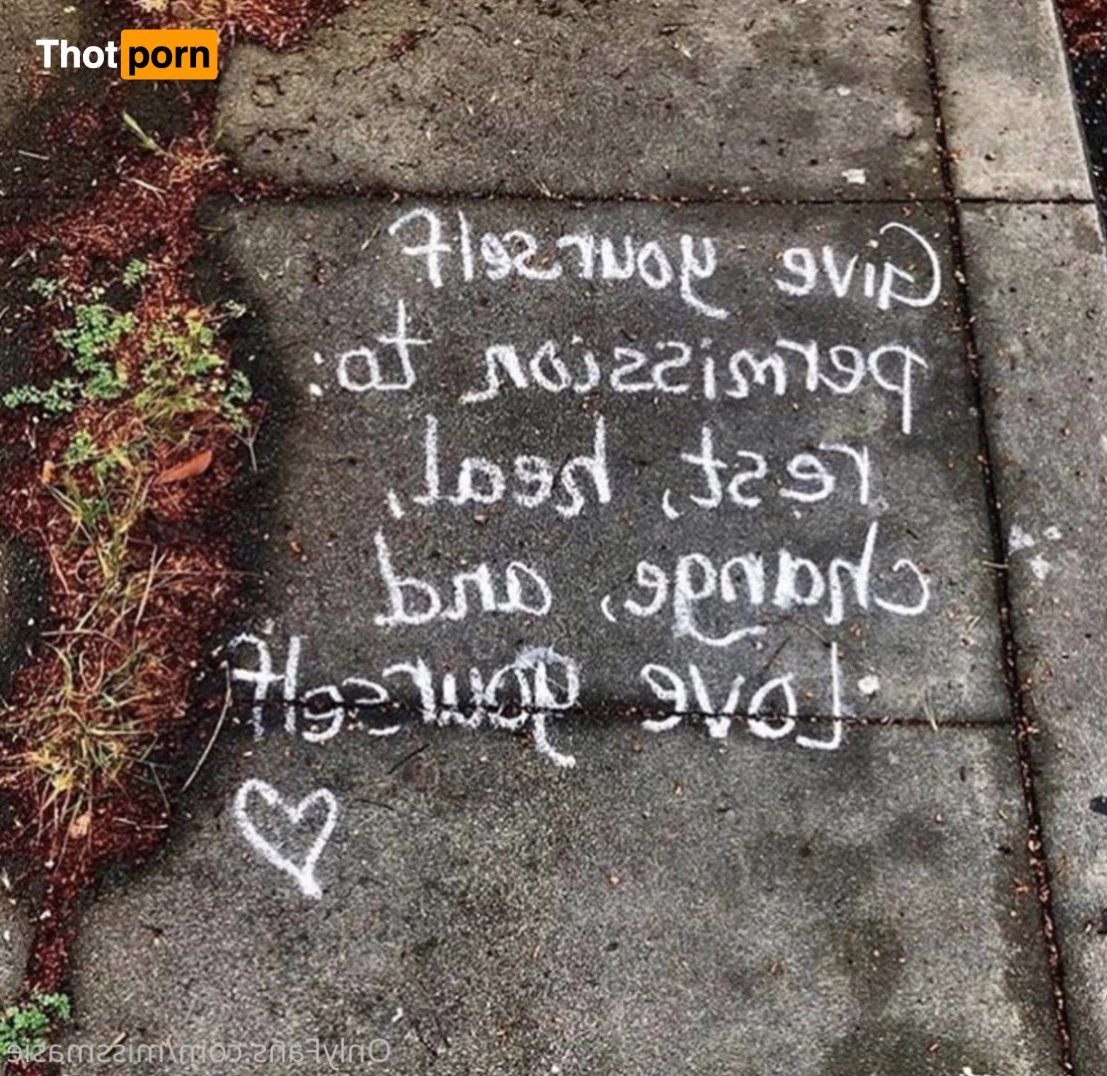 Thotporn
Give yourself
permission to:
rest, heal,
change, and
Love yourself
OnlyFans.com/missmasie